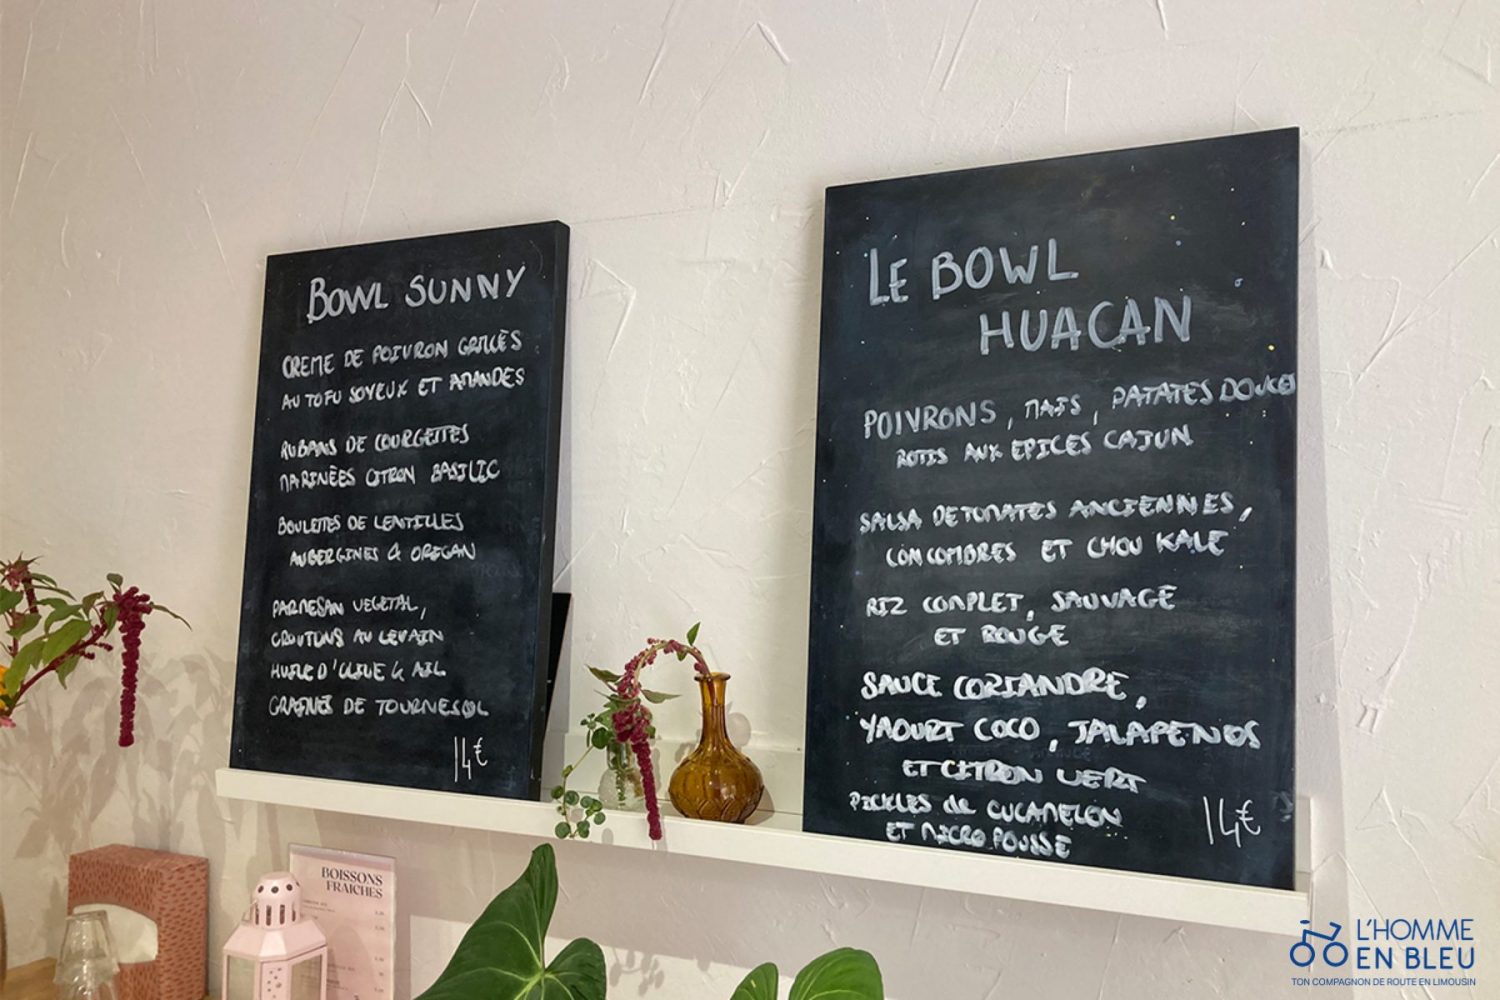 BOWL SUNNY
CREME DE POIVRON GRILLÉS
AU TOFU SOYEUX ET AMANDES
RUBANS DE COURGETTES
MARINÉES CITRON BASILIC
BOULETTES DE LENTILLES
AUBERGINES & OREGAN
PARMESAN VEGETAL,
CROUTONS AU LEVAIN
HUILE D'OLIVE & AIL
GRAINES DE TOURNESOL
14€
LE BOWL
HUACAN
POIVRONS, MAIS, PATATES DOUCES
ROTIS AUX EPICES CAJUN
SALSA DE TOMATES ANCIENNES,
CONCOMBRES ET CHOU KALE
RIZ COMPLET, SAUVAGE
ET ROUGE
SAUCE CORIANDRE,
YAOURT COCO, JALAPENOS
ET CITRON VERT
PICKLES de CUCAMELON
ET MICRO POUSSE
14€
BOISSONS
FRAICHES
L'HOMME
EN BLEU
TON COMPAGNON DE ROUTE EN LIMOUSIN